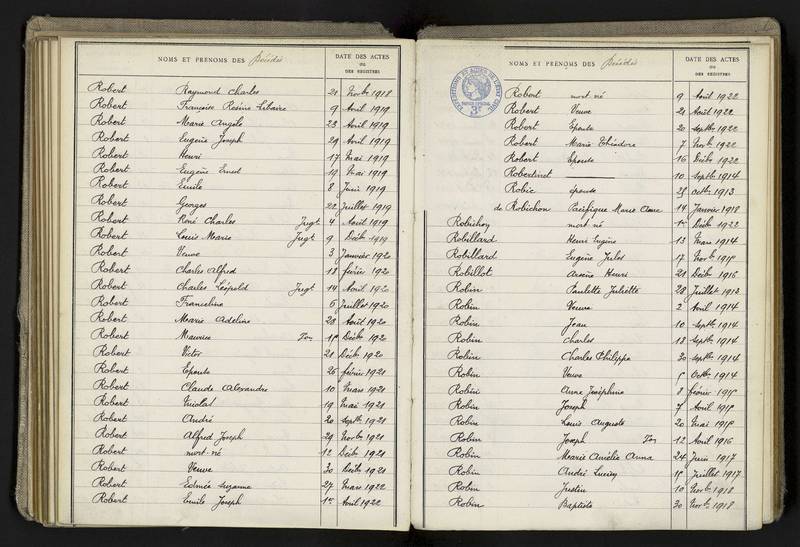 NOMS ET PRÉNOMS DES Décédés
DATE DES ACTES
OU
DES REGISTRES
Robert Raymond Charles 21 Novbre 1918
Robert Françoise Rosine Libaire 9 Avril 1919
Robert Marie Angèle 23 Avril 1919
Robert Eugène Joseph 29 Avril 1919
Robert Henri 17 Mai 1919
Robert Eugène Ernest 19 Mai 1919
Robert Emile 8 Juin 1919
Robert Georges 22 Juillet 1919
Robert René Charles Jugt 4 Août 1919
Robert Louis Marie Jugt 9 Décbre 1919
Robert Veuve 3 Janvier 1920
Robert Charles Alfred 18 février 1920
Robert Charles Léopold Jugt 14 Avril 1920
Robert Franceline 6 Juillet 1920
Robert Marie Adeline 28 Août 1920
Robert Maurice Don 15 Décbre 1920
Robert Victor 21 Décbre 1920
Robert Epouse 26 février 1921
Robert Claude Alexandre 10 Mars 1921
Robert Nicolas 19 Mai 1921
Robert André 20 Septbre 1921
Robert Alfred Joseph 29 Novbre 1921
Robert mort-né 12 Décbre 1921
Robert Veuve 30 Décbre 1921
Robert Edmée Suzanne 27 Mars 1922
Robert Emile Joseph 1er Avril 1922
NOMS ET PRÉNOMS DES Décédés
DATE DES ACTES
OU
DES REGISTRES
Robert mort-né 9 Avril 1922
Robert Veuve 21 Août 1922
Robert Epouse 20 Septbre 1922
Robert Marie Théodore 7 Novbre 1922
Robert Epouse 16 Décbre 1922
Robertinet 10 Septbre 1914
Robic épouse 25 Octbre 1913
de Robichon Pacifique Marie Claire 14 Janvier 1918
Robichon mort-né 1er Décbre 1922
Robillard Henri Eugène 13 Mars 1914
Robillard Eugène Jules 17 Novbre 1915
Robillot Arsène Henri 21 Décbre 1916
Robin Paulette Juliette 28 Juillet 1913
Robin Veuve 2 Avril 1914
Robin Jean 10 Septbre 1914
Robin Charles 18 Septbre 1914
Robin Charles Philippe 30 Septbre 1914
Robin Veuve 5 Octbre 1914
Robin Anne Joséphine 8 février 1915
Robin Joseph 7 Avril 1915
Robin Louis Auguste 20 Mai 1915
Robin Joseph Don 12 Avril 1916
Robin Marie Amélie Anna 24 Juin 1917
Robin André Lucien 15 Juillet 1917
Robin Justin 10 Novbre 1918
Robin Baptiste 30 Novbre 1918